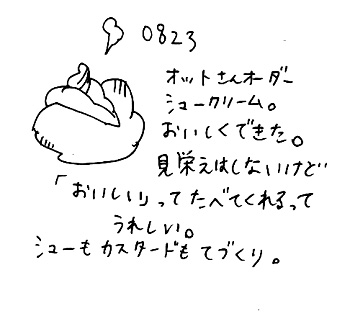 0823
オットさんオーダー
シュークリーム。
おいしくできた。
見栄えはしないけど
「おいしい」ってたべてくれるって
うれしい。
シューもカスタードもてづくり。